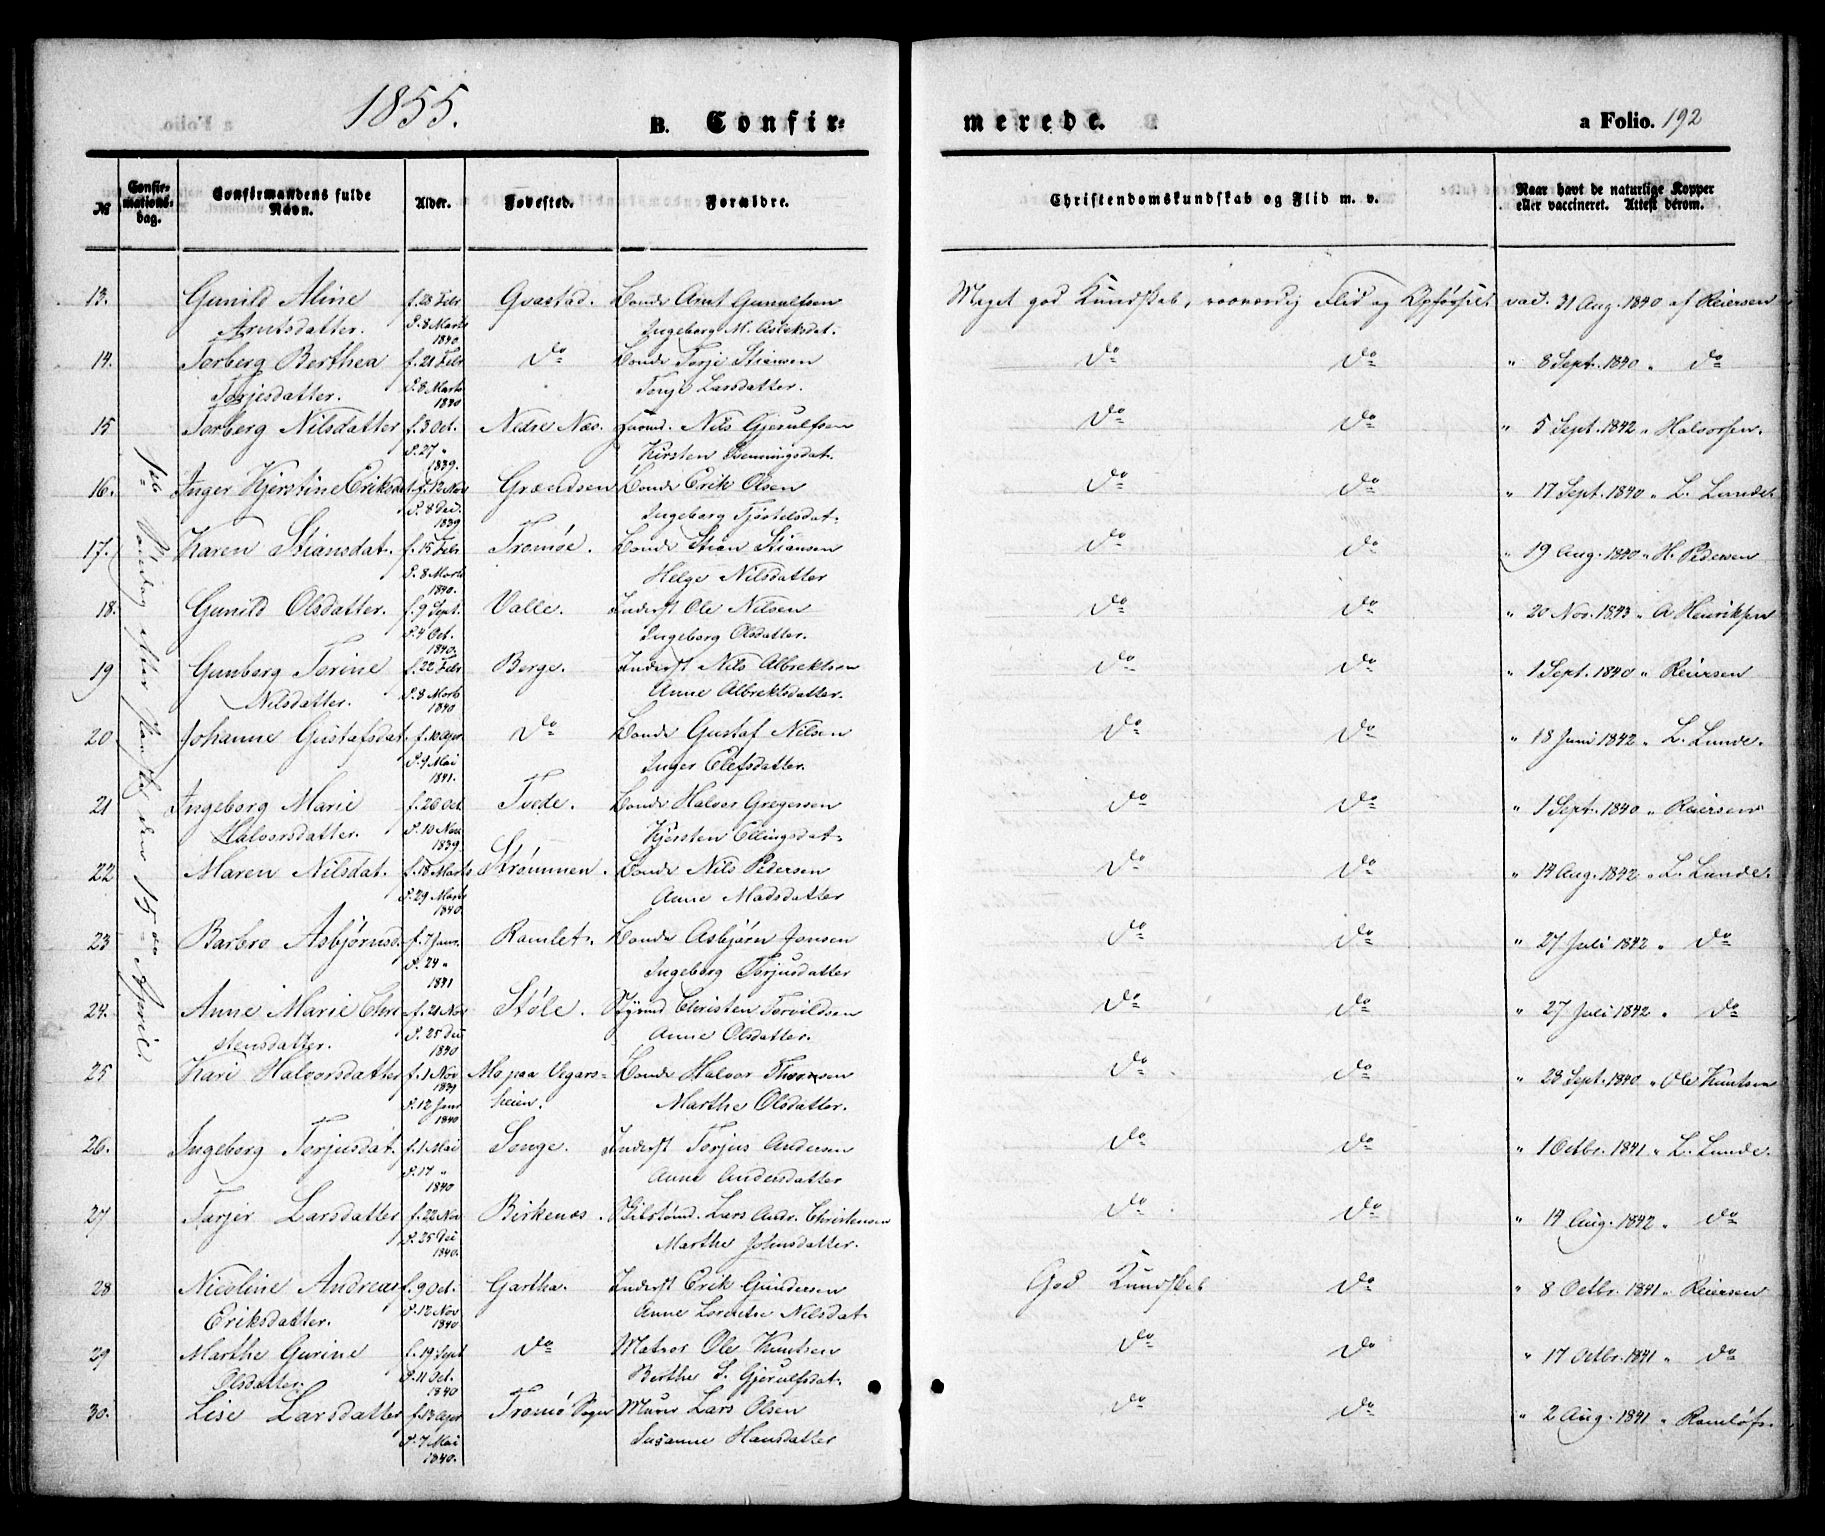 1855.
B. Confir-
merede.
a Folio. 192
№
Confir-
mations-
dag.
Confirmandens fulde
Navn.
Alder.
Fødested.
Forældre.
Christendomskundskab og Flid m. v.
Naar havt de naturlige Kopper
eller vaccineret. Attest derom.
1ste Søndag efter Paaske den 15de April
13. Gunild Aline f. 23 Febr Qvastad. Bonde Arnt Gunulfsen Meget god Kundskab, roosværdig Flid og Opførsel. vac. 31 Aug. 1840 af Reiersen
Arntsdatter. d. 8 Marts Ingeborg M. Aslaksdat.
1840
14. Torberg Berthea f. 21 Febr do Bonde Torje Stiansen do do " 8 Sept. 1840 " do
Torjesdatter. d. 8 Marts Torje Larsdatter.
1840
15 Torberg Nilsdatter f. 3 Oct. Nedre Næs. Nils Gjerulfsen do do " 5 Sept. 1842 " Halvorsen.
d. 27 " Kirsten Henningsdat.
1839.
16. Inger Kjerstine Eriksdat f. 12 Nov Grændsen Bonde Erik Olsen do do " 17 Sept. 1840 " L. Lunde.
d. 8 Dec. Ingeborg Tjøstelsdat.
1839
17. Karen Stiansdat. f. 15 Febr Tromøe. Bonde Stian Stiansen do do " 19 Aug. 1840 " H. Pedersen
d. 8 Marts Helge Nilsdatter
1840.
18. Gunild Olsdatter. f. 9 Sept. Valle. Inderst Ole Nilsen do do " 20 Nov. 1843 " A Henriksen
d. 4 Oct. Ingeborg Olsdatter.
1840.
19 Gunborg Torine f. 22 Febr Berge. Inderst Nils Albrektsen do do " 1 Sept. 1840 " Reiersen
Nilsdatter. d. 8 Marts Anne Albrektsdatter.
1840
20. Johanne Gustafsdat. f. 10 Apr do Bonde Gustaf Nilsen do do " 18 Juni 1842 " L. Lunde.
d. 9 Mai Inger Olefsdatter.
1841.
21 Ingeborg Marie f. 26 Oct. Tvede. Bonde Halvor Gregersen do do " 1 Sept. 1840 " Reiersen
Halvorsdatter. d. 10 Nov. Kjersten Ellingsdat.
1839.
22 Maren Nilsdat. f. 18 Marts Strømmen. Bonde Nils Pedersen do do " 14 Aug. 1842 " L. Lunde.
d. 29 Marts Anne Madsdatter
1840.
23 Barbro Asbjørnsd. f. 7 Janr. Ramlet. Bonde Asbjørn Jonsen do do " 27 Juli 1842 " do
d. 24 " Ingeborg Torjusdatter
1841
24. Anne Marie Chri f. 21 Nov Støle. Styrmd Christen Torvildsen do do " 27 Juli 1842 " do
stensdatter. d. 25 Dec Anne Olsdatter.
1840
25 Kari Halvorsdatter f. 1 Nov Mopaa Vegars- Bonde Halvor Thorsen do do " 23 Sept. 1840 " Ole Knutsen
1839
d. 12 Janr heien. Marthe Olsdatter.
1840
26. Ingeborg Torjusdat. f. 1 Mai Songe. Inderst Torjus Andersen do do " 1 Octbr. 1841 " L. Lunde.
d. 17 " Anne Andersdatter
1840
27 Tarjer Larsdatter f. 22 Nov Birkenæs. Lars Andr. Christensen do do " 14 Aug. 1842 " do
d. 25 Dec Marthe Johnsdatter.
1840.
28 Nicoline Andrea f. 9 Oct. Gartha. Inderst Erik Gundersen God Kundskab do " 8 Octbr. 1841 " Reiersen
Eriksdatter. d. 12 Nov Anne Lorentze Nilsdat.
1840
29 Marthe Gurine f. 19 Sept do Matros Ole Knutsen do do " 17 Octbr. 1841 " do
Olsdatter. d. 11 Oct. Berthe S. Gjerulfsdat.
1840
30. Lise Larsdatter f. 13 Apr Tromø Sogn Muur Lars Olsen do do " 2 Aug. 1841 " Ramløfs.
d. 7 Mai Susanne Hansdatter
1840.